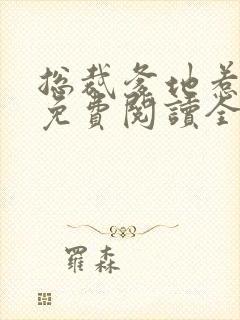 總裁爹地惹
免費閱讀全
羅森